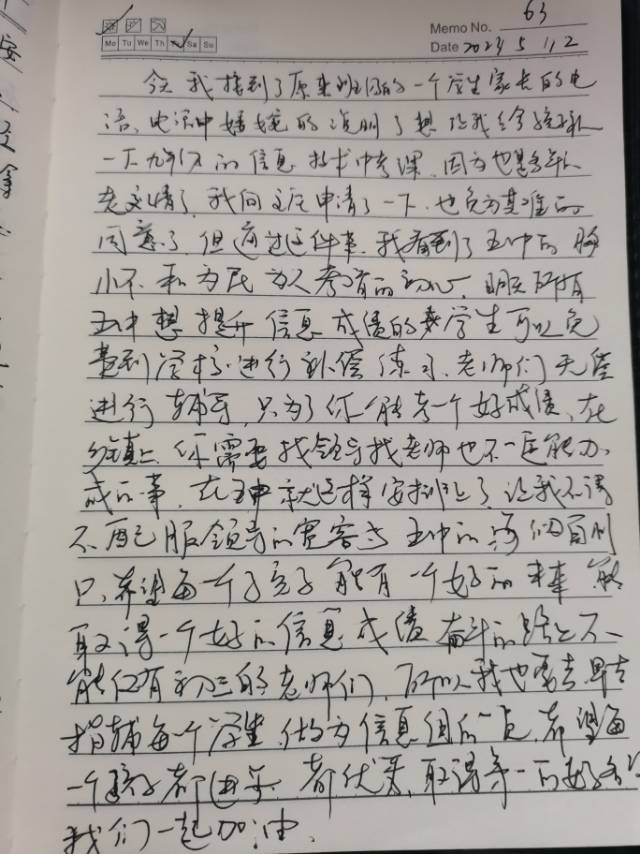 Memo No. 63
Mo Tu We Th Fr Sa Su
Date 2023 5 12
今天我接到了原来班级的一个学生家长的电
话,电话中婉转的说明了想让我给孩子
一下九年级的信息技术中考课,因为也是多年
老交情了,我向主任申请了一下,也免为其难的
同意了,但通过这件事,我看到了五中的
小不和为民为人考虑的初心,明天所有
五中想提升信息成绩的学生可以免
费到学校进行补偿练习,老师们无偿
进行辅导,只为了你能考一个好成绩,在
乡镇上你需要找领导找老师也不一定能办
成的事,在五中就这样安排上了,让我不得
不配服领导的宽容与五中的
只希望每一个孩子能有一个好的未来,能
取得一个好的信息成绩,奋斗的路上不
能仅有初三的老师们,所以我也要去
指辅每个学生,做为信息组的一员,希望每
一个孩子都进步,都优秀,取得第一的好
我们一起加油.